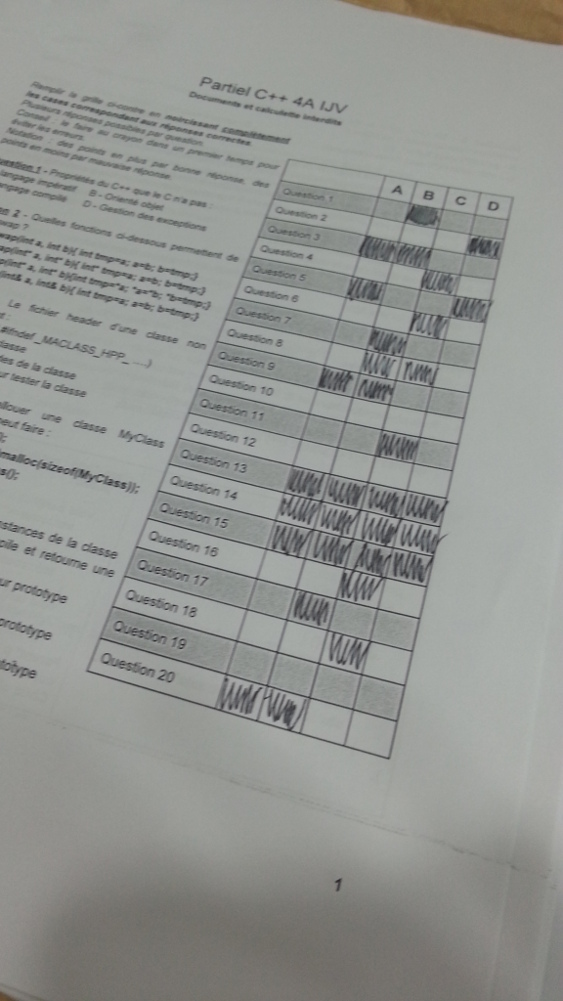 Partiel C++ 4A IJV
Documents et calculette interdits
Remplir la grille ci-contre en noircissant complètement
les cases correspondant aux réponses correctes.
Plusieurs réponses possibles par question.
Conseil : le faire au crayon dans un premier temps pour
éviter les erreurs.
Notation : des points en plus par bonne réponse, des
points en moins par mauvaise réponse.
uestion 1 - Propriétés du C++ que le C n'a pas :
langage impératif B - Orienté objet
angage compilé D - Gestion des exceptions
on 2 - Quelles fonctions ci-dessous permettent de
swap ?
wap(int a, int b){ int tmp=a; a=b; b=tmp;}
ap(int* a, int* b){ int* tmp=a; a=b; b=tmp;}
p(int* a, int* b){int tmp=*a; *a=*b; *b=tmp;}
(int& a, int& b){ int tmp=a; a=b; b=tmp;}
Le fichier header d'une classe non
t :
#ifndef _MACLASS_HPP_ ....)
lasse
des de la classe
ur tester la classe
allouer une classe MyClass
peut faire :
);
malloc(sizeof(MyClass));
s();
nstances de la classe
pile et retourne une
ur prototype
prototype
totype
A B C D
Question 1
Question 2
Question 3
Question 4
Question 5
Question 6
Question 7
Question 8
Question 9
Question 10
Question 11
Question 12
Question 13
Question 14
Question 15
Question 16
Question 17
Question 18
Question 19
Question 20
1